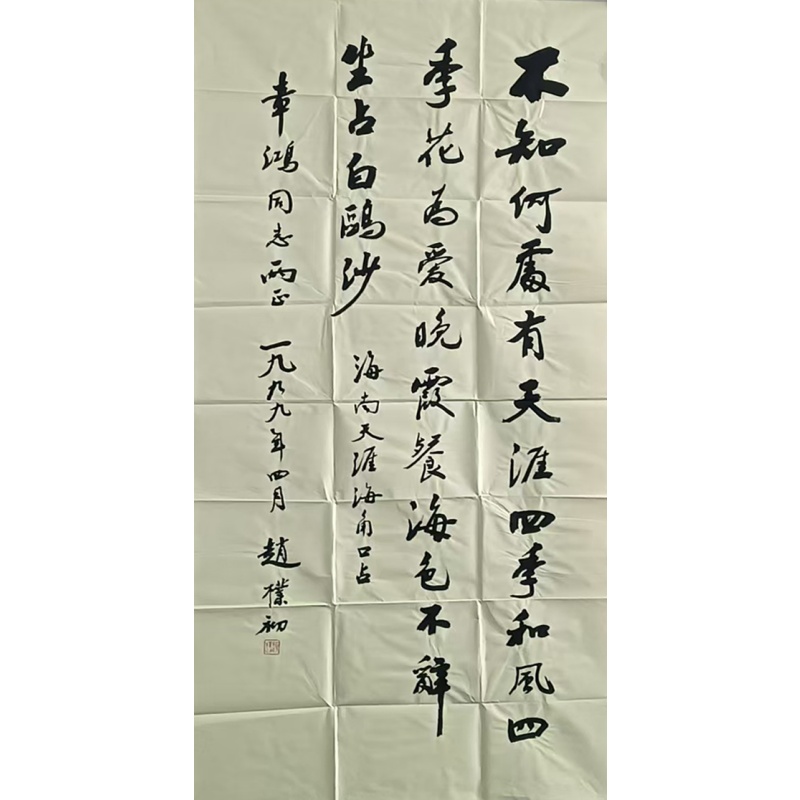 不知何處有天涯四季和風四
季花為愛晚霞餐海色不辭
坐占白鷗沙
海南天涯海角口占
章鴻同志兩正
一九九九年四月
趙樸初